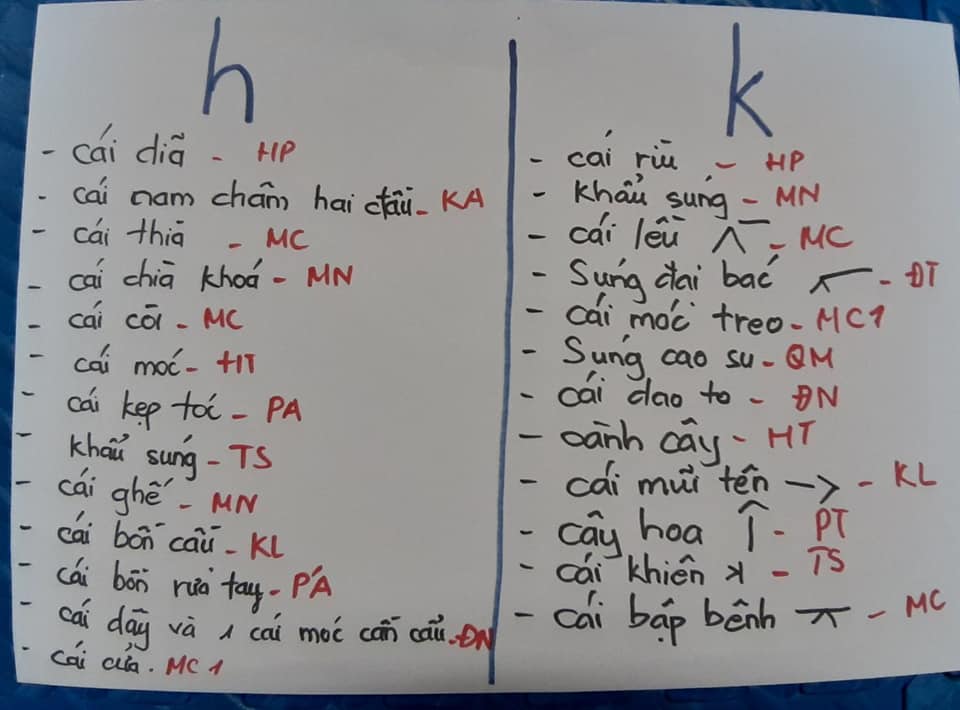 h
- cái dĩa - HP
- cái nam châm hai đầu - KA
- cái thìa - MC
- cái chìa khoá - MN
- cái còi - MC
- cái móc - HT
- cái kẹp tóc - PA
- khẩu súng - TS
- cái ghế - MN
- cái bồn cầu - KL
- cái bồn rửa tay - PA
- cái dây và 1 cái móc cần cẩu - ĐN
- cái cửa. MC1
k
- cái rìu - HP
- khẩu súng - MN
- cái lều - MC
- Súng đại bác - ĐT
- cái móc treo - MC1
- Súng cao su - QM
- cái dao to - ĐN
- cành cây - HT
- cái mũi tên → - KL
- cây hoa - PT
- cái khiên - TS
- cái bập bênh - MC